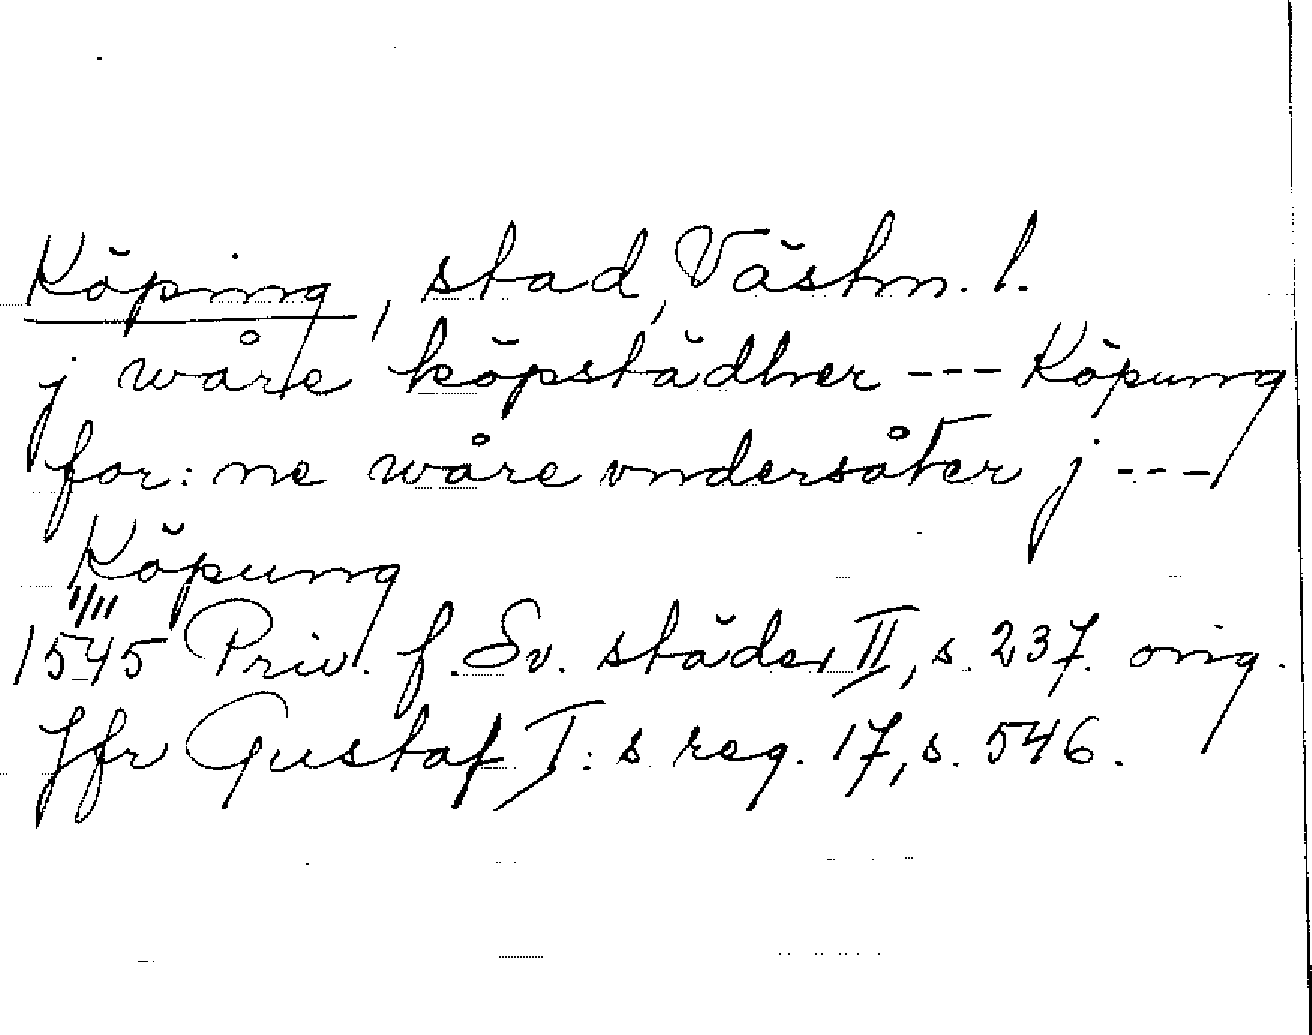 Köping, stad, Västm. l.
j wåre köpstädher --- Köpung
for: ne wåre vndersåter j ---
Köpung
1/11
1545 Priv. f. Sv. städer II, s. 237. orig.
Jfr Gustaf I: s reg. 17, s. 546.